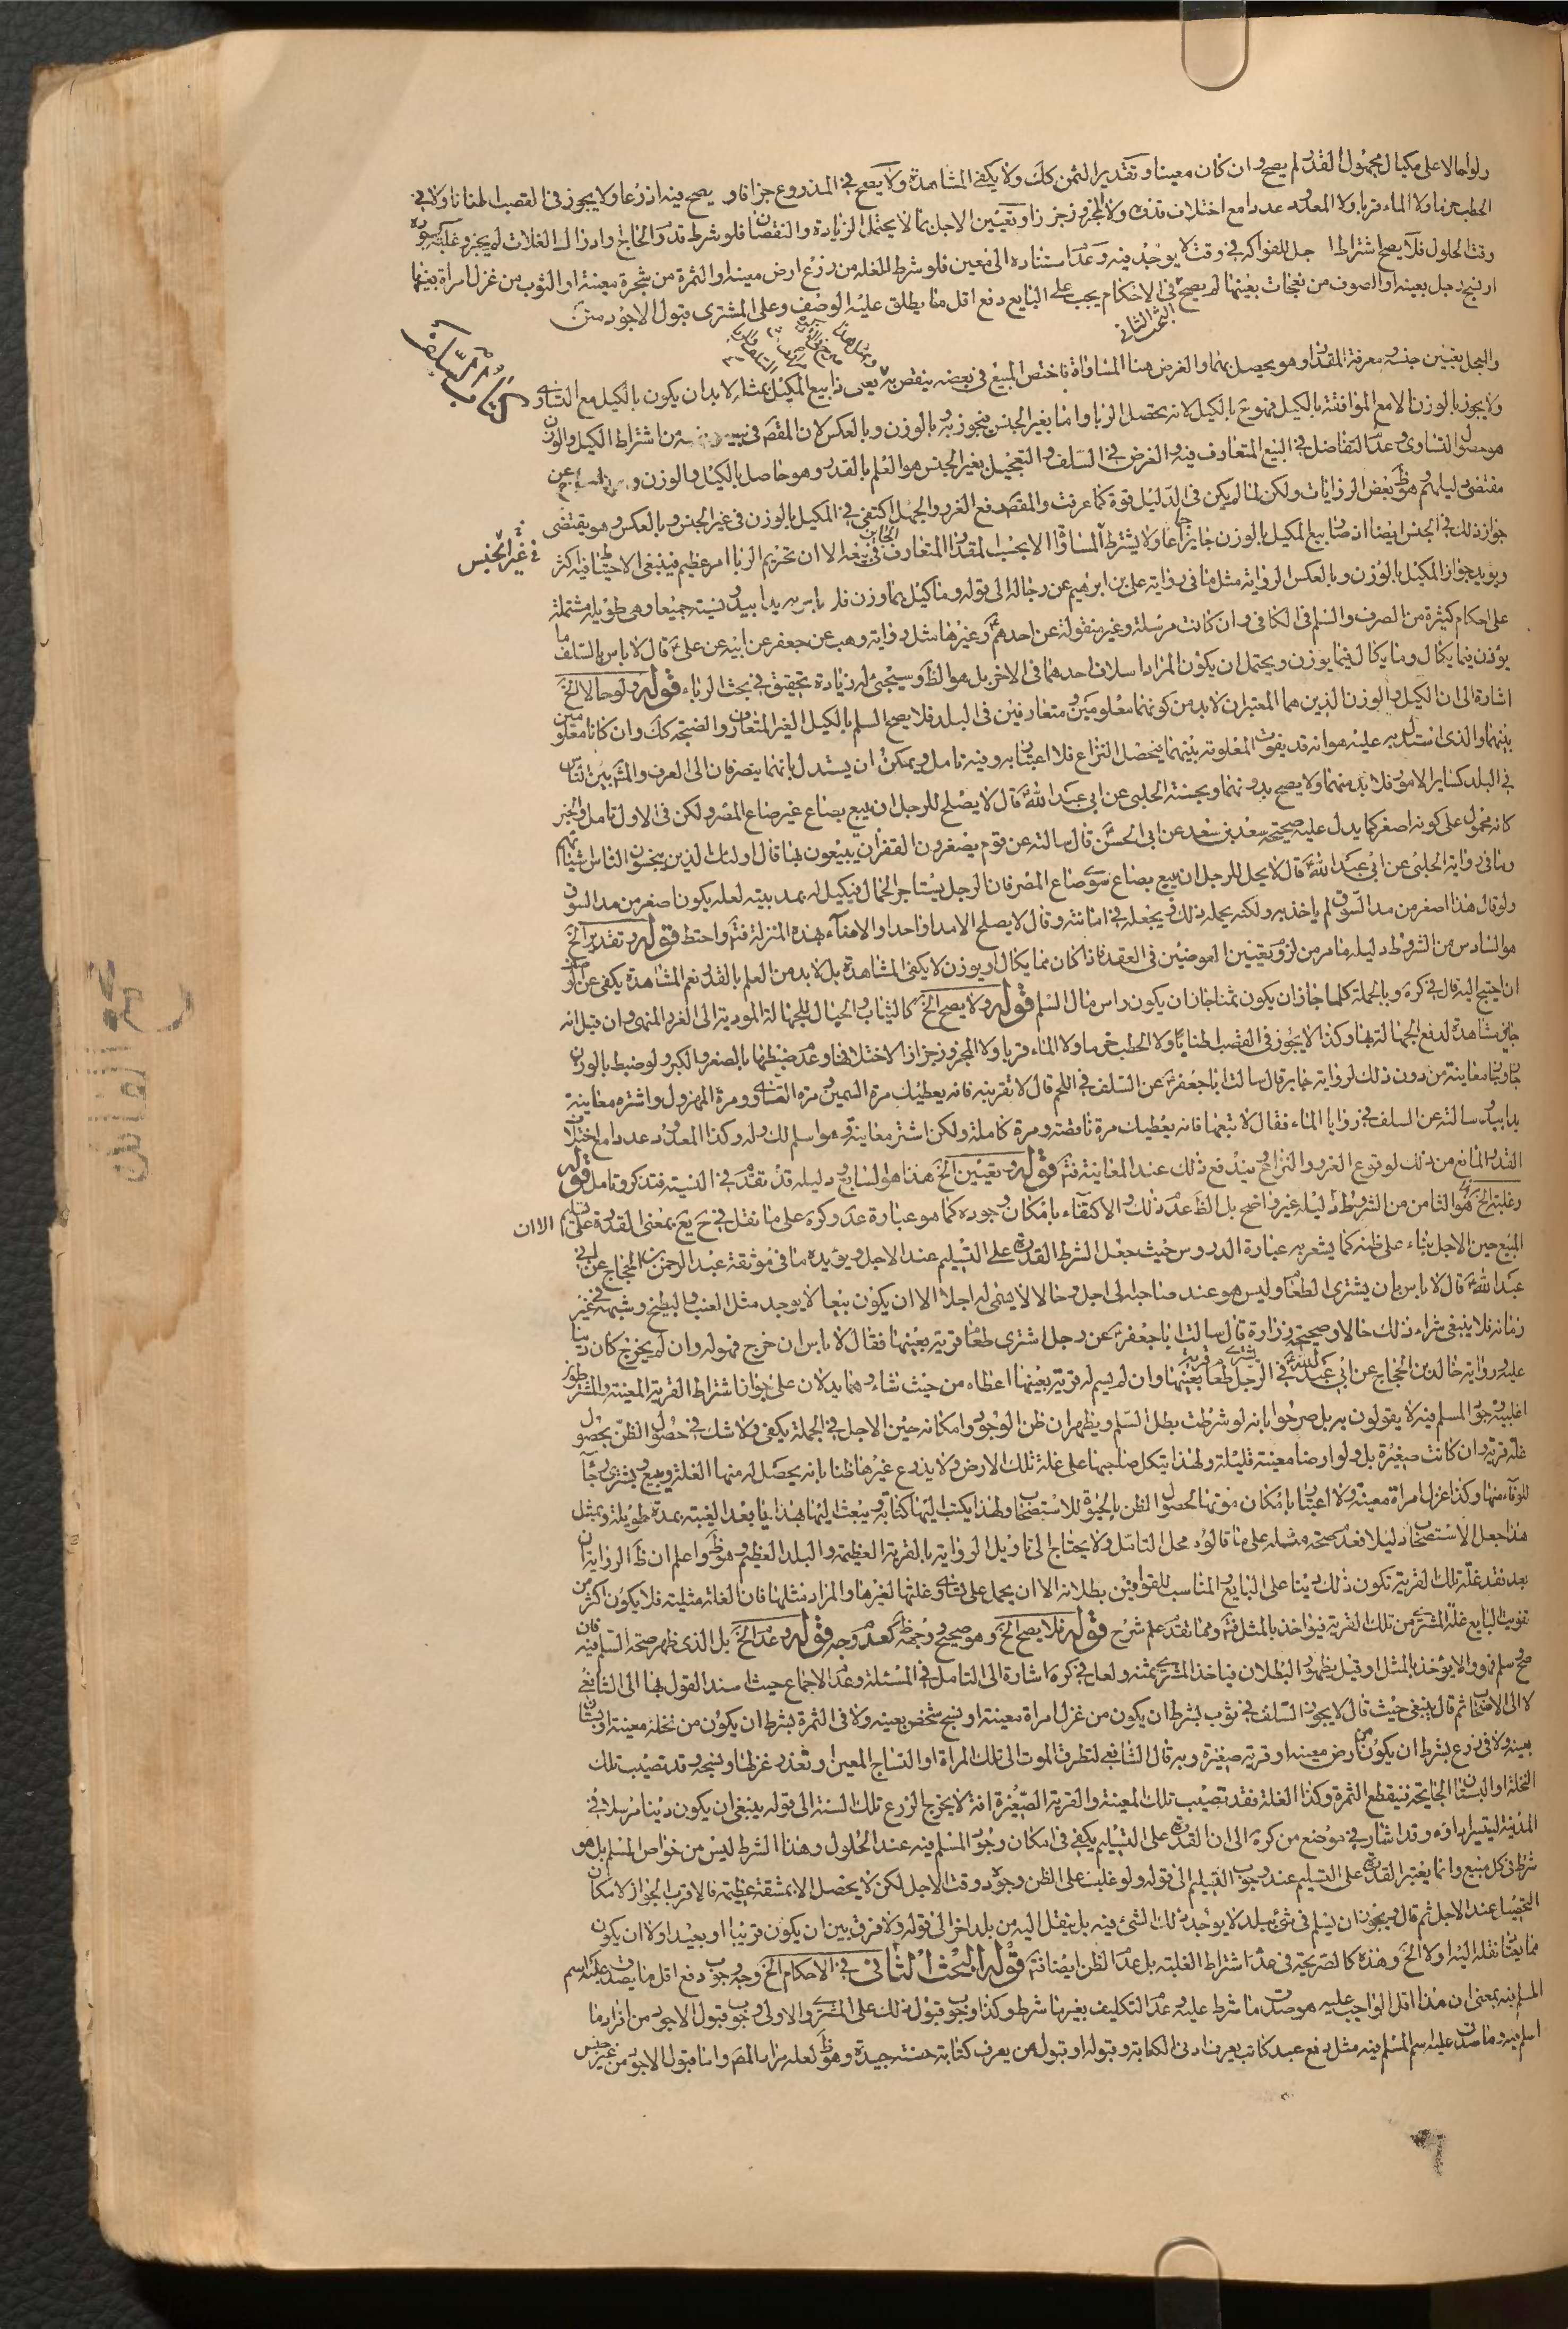 ولو احالا على مكيال مجهول القدر لم يصح وان كان معينا و تقدير الثمن كك ولا يكفى المشاهدة ولا يصح فى المذروع جزافا و يصح فيه اذرعا ولا يجوز فى القصب اطنانا ولا فى
الحطب حزما ولا الماء قربا ولا المعدود عددا مع اختلاف قدره ولا المجزوز جززا و تعيين الاجل بما لا يحتمل الزيادة و النقصان فلو شرط قدوم الحاج وادراك الغلات لم يجز و غلبة وجوده
وقت الحلول فلا يصح اشتراط اجل للفواكه فى وقت لا يوجد فيه و عدم استناده الى معين فلو شرط الغلة من زرع ارض معينه او الثمرة من شجرة معينة او الثوب من غزل امراة بعينها
او نسج رجل بعينه او الصوف من نعجات بعينها لم يصح
البحث الثانى
فى الاحكام يجب على البايع دفع اقل ما يطلق عليه الوصف وعلى المشترى قبول الاجود
كتاب السلف
والجهل بتعيين جنسه معرفة المقدار وهو يحصل بهما و الغرض هنا المساواة باختص المبيع فى بعضه ينقص به يعى ذا بيع المكيل بمثله لابد ان يكون بالكيل مع التساوى
ولا يجوز بالوزن الا مع الموافقة بالكيل فهو بيع بالكيل لانه يحصل الربا و اما بغير الجنس فيجوز به بالوزن و بالعكس لان المقص فى اشتراط الكيل والوزن
هو حصول التساوى و عدم التفاضل فى البيع المتعارف فيه والغرض فى السلف والتعجيل بغير الجنس هو العلم بالقدر وهو حاصل بالكيل والوزن و
مقتضى دليلهم وهو ظ بعض الروايات ولكن لما لم يكن فى الدليل قوة كما عرفت والمقص دفع الغرر والجهل اكتفى فى المكيل بالوزن فى غير الجنس و بالعكس وهو يقتضى
فى غير الجنس
جواز ذلك فى الجنس ايضا اذ صار بيع المكيل بالوزن جايزا ولا يشترط المساواة الا بحسب المقدار المتعارف فى بيعه الا ان تحريم الربا امر عظيم فينبغى الاحتياط فيه كثيرا
ويويد جواز المكيل بالوزن و بالعكس الرواية مثل ما فى رواية على بن ابرهيم عن رجاله الى قوله وما كيل بما وزن فلا باس به يدا بيد و نسيئة جميعا وهى طويلة مشتملة
على احكام كثيرة من الصرف والسلم فى الكافى وان كانت مرسلة و غير منقولة عن احدهم ع و غيرها مثل رواية وهب عن جعفر عن ابيه عن على ع قال لا باس بالسلف
يوزن فيما يكال وما يكال فيما يوزن و يحتمل ان يكون المراد اسلاف احدهما فى الاخر بل هو الظ و سيجئ له زيادة تحقيق فى بحث الرباء قوله ولو حالا الخ
اشارة الى ان الكيل والوزن الذين هما المعتبران لابد من كونهما معلومين و متعارفين فى البلد فلا يصح السلم بالكيل الغير المتعارف والصنجة كك وان كانا معلومين
بينهما والذى استدل به عليه هو انه قد يفوت المعلومة بينهما فيحصل النزاع فلا اعتبار به وفيه تامل و يمكن ان يستدل بانهما ينصرفان الى العرف والمتعارف بين الناس
فى البلد كساير الامور فلا بد منهما ولا يصح بدونهما و بحسنة الحلبى عن ابى عبد الله ع قال لا يصلح للرجل ان يبيع بصاع غير صاع المصر ولكن فى الاول تامل و الخبر
كانه محمول على كونه اصغر كما يدل عليه صحيحة سعد بن سعد عن ابى الحسن ع قال سالته عن قوم يصغرون القفزان يبيعون بها قال اولئك الذين يبخسون الناس اشياءهم
وما فى رواية الحلبى عن ابى عبد الله ع قال لا يحل للرجل ان يبيع بصاع سوى صاع المصر فان الرجل يستاجر الحمال فيكيل له بمد بيته لعله يكون اصغر من مد السوق
ولو قال هذا اصغر من مد السوق لم ياخذ به ولكنه يحمله ذلك و يجعله فى امانته و قال لا يصلح الا مدا واحدا والامناء بهذه المنزلة فتم واحتط قوله وتقدير الخ
هو السادس من الشروط دليله ما مر من لزوم تعيين العوضين فى العقد فاذا كان مما يكال او يوزن لا يكفى المشاهدة بل لابد من العلم بالقدر نعم المشاهدة يكفى عن الوصف
ان احتيج اليه قال فى كرة و بالجملة كلما جاز ان يكون ثمنا جاز ان يكون راس مال السلم قوله ولا يصح الخ كالثياب والحبال للجهالة المودية الى الغرر والمنهى وان قيل انه
جايز مشاهدة لدفع الجهالة بها وكذا لا يجوز فى القصب اطنانا ولا الحطب حزما ولا الماء قربا ولا المجزوز جززا لاختلافها و عدم ضبطها بالصغر و الكبر و لو ضبط بالوزن
جاز و بيعها معاينة من دون ذلك لرواية جابر قال سالت ابا جعفر ع عن السلف فى اللحم قال لا تقربنه فانه يعطيك مرة السمين و مرة التاوى و مرة المهزول واشتره معاينة
يدا بيد و سالته عن السلف فى روايا الماء فقال لا تبعها فانه يعطيك مرة ناقصة و مرة كاملة ولكن اشتر معاينة وهو اسلم لك و له و كذا المعدود عددا مع اختلاف
القدر المانع من ذلك لوقوع الغرر و النزاع يندفع ذلك عند المعاينة فتم قوله وتعيين الخ هذا هو السابع و دليله قد تقدم فى النسيئة فتذكر و تامل قوله
وغلبة الخ هو الثامن من الشروط دليله غير واضح بل الظ عدم ذلك والاكتفاء بامكان وجوده كما هو عبارة عد و كرة على ما نقل فى ح يع بمعنى القدرة على تسليم الا ان
المبيع حين الاجل بناء على ظنه كما يشعر به عبارة الدروس حيث جعل الشرط القدرة على التسليم عند الاجل و يؤيده ما فى موثقة عبد الرحمن بن الحجاج عن ابى
عبد الله ع قال لا باس بان يشترى الطعام وليس هو عند صاحبه الى اجل و حالا لا يسمى له اجلا الا ان يكون بيعا لا يوجد مثل العنب والبطيخ و شبهه فى غير
زمانه فلا ينبغى شراء ذلك حالا و صحيحة زرارة قال سالت ابا جعفر ع عن رجل اشترى طعام قرية بعينها فقال لا باس ان خرج فهو له وان لم يخرج كان دينا
عليه و رواية خالد بن الحجاج عن ابى عبد الله ع فى الرجل يشترى طعام قرية بعينها وان لم يسم له قرية بعينها اعطاه من حيث شاء و هما يدلان على جواز اشتراط القرية المعينة والمشترطون
اغلبية وجود المسلم فيه لا يقولون به بل صرحوا بانه لو شرطت بطل السلم و يظهر ان ظن الوجود و امكانه حين الاجل فى الجملة يكفى ولا شك فى حصول الظن بحصول
غلة قرية وان كانت صغيرة بل ولو ارضا معينة قليلة ولهذا يتكل صاحبها على غلة تلك الارض ولا يزرع غيرها ظنا بانه يحصل له منها الغلة و يبيع و يشترى رجاء
للوفاء منها وكذا غزل امراة معينة ولا اعتبار بامكان موتها لحصول الظن بالحيوة للاستصحاب ولهذا يكتب اليها كتابة و يبعث اليها بهدايا بعد الغيبة بمدة طويلة و بمثل
هذا جعل الاستصحاب دليلا فعدم صحة مثله على ما قالوه محل التامل ولا يحتاج الى تاويل الرواية بالقرية العظيمة والبلد العظيم وهو ظ واعلم ان ظ الروايتان
بعد فقد غلة تلك القرية تكون ذلك دينا على البايع والمناسب للقوانين بطلانه الا ان يحمل على تساوى غلتها لغيرها والمراد مثلها فان الغلة مثلية فلا يكون اكثر من
تفويت البايع غلة المشترى من تلك القرية فيؤاخذ بالمثل فتم ومما تقدم علم شرح قوله فلا يصح الخ وهو صحيح و وجهه ظ كعدم وجه قوله وعدم الخ بل الذى ظهر صحة السلم فيه فان
صح و سلم فهو والا يؤخذ بالمثل او قيل بظهور البطلان فياخذ المشترى ثمنه ولعل فى كرة اشارة الى التامل فى المسئلة و عدم الاجماع حيث اسند القول بهذا الى الشافعى
لا الى الاصحاب ثم قال ينبغى حيث قال لا يجوز السلف فى ثوب بشرط ان يكون من غزل امراة معينة او نسج شخص بعينه ولا فى الثمرة بشرط ان يكون من نخلة معينة او بستان
بعينه ولا فى زرع بشرط ان يكون من ارض معينه او قرية صغيرة وبه قال الشافعى لتطرق الموت الى تلك المراة او النساج المعين و تعذر غزلها و نسجه و قد تصيب تلك
النخلة او البستان الجايحة فينقطع الثمرة و كذا الغلة فقد تصيب تلك المعينة والقرية الصغيرة افة لا يخرج الزرع تلك السنة الى قوله ينبغى ان يكون دينا مرسلا فى
الذمة ليتيسر اداؤه و قد اشار فى موضع من كرة الى ان القدرة على التسليم يكفى فى امكان وجود المسلم فيه عند الحلول و هذا الشرط ليس من خواص السلم بل هو
شرط فى كل مبيع وانما يعتبر القدرة على التسليم عند وجوب التسليم الى قوله ولو غلب على الظن وجوده وقت الاجل لكن لا يحصل الا بمشقة عظيمة فالاقرب الجواز لامكان
التحصيل عند الاجل ثم قال و يجوز ان يسلم فى شئ ببلد لا يوجد ذلك الشئ فيه بل ينقل اليه من بلد اخر الى قوله ولا فرق بين ان يكون قريبا او بعيدا ولا ان يكون
مما يعتاد نقله اليه او لا الخ وهذه كالصريحة فى عدم اشتراط الغلبة بل عدم الظن ايضا فتم قوله البحث الثانى فى الاحكام الخ وجه وجوب دفع اقل ما يصدق عليه اسم
المسلم فيه بمعنى ان هذا اقل الواجب عليه هو صدق ما شرط عليه و عدم التكليف بغيرها شرط و كذا وجوب قبول ذلك على المشترى والاولى وجوب قبول الاجود من افراد ما
اسلم فيه وما صدق عليه اسم المسلم فيه مثل دفع عبد كاتب يعرف ادنى الكتابة و قبوله او قبول من يعرف كتابة حسنة جيدة وهو ظ لعله مراد المص واما قبول الاجود من غير جنس